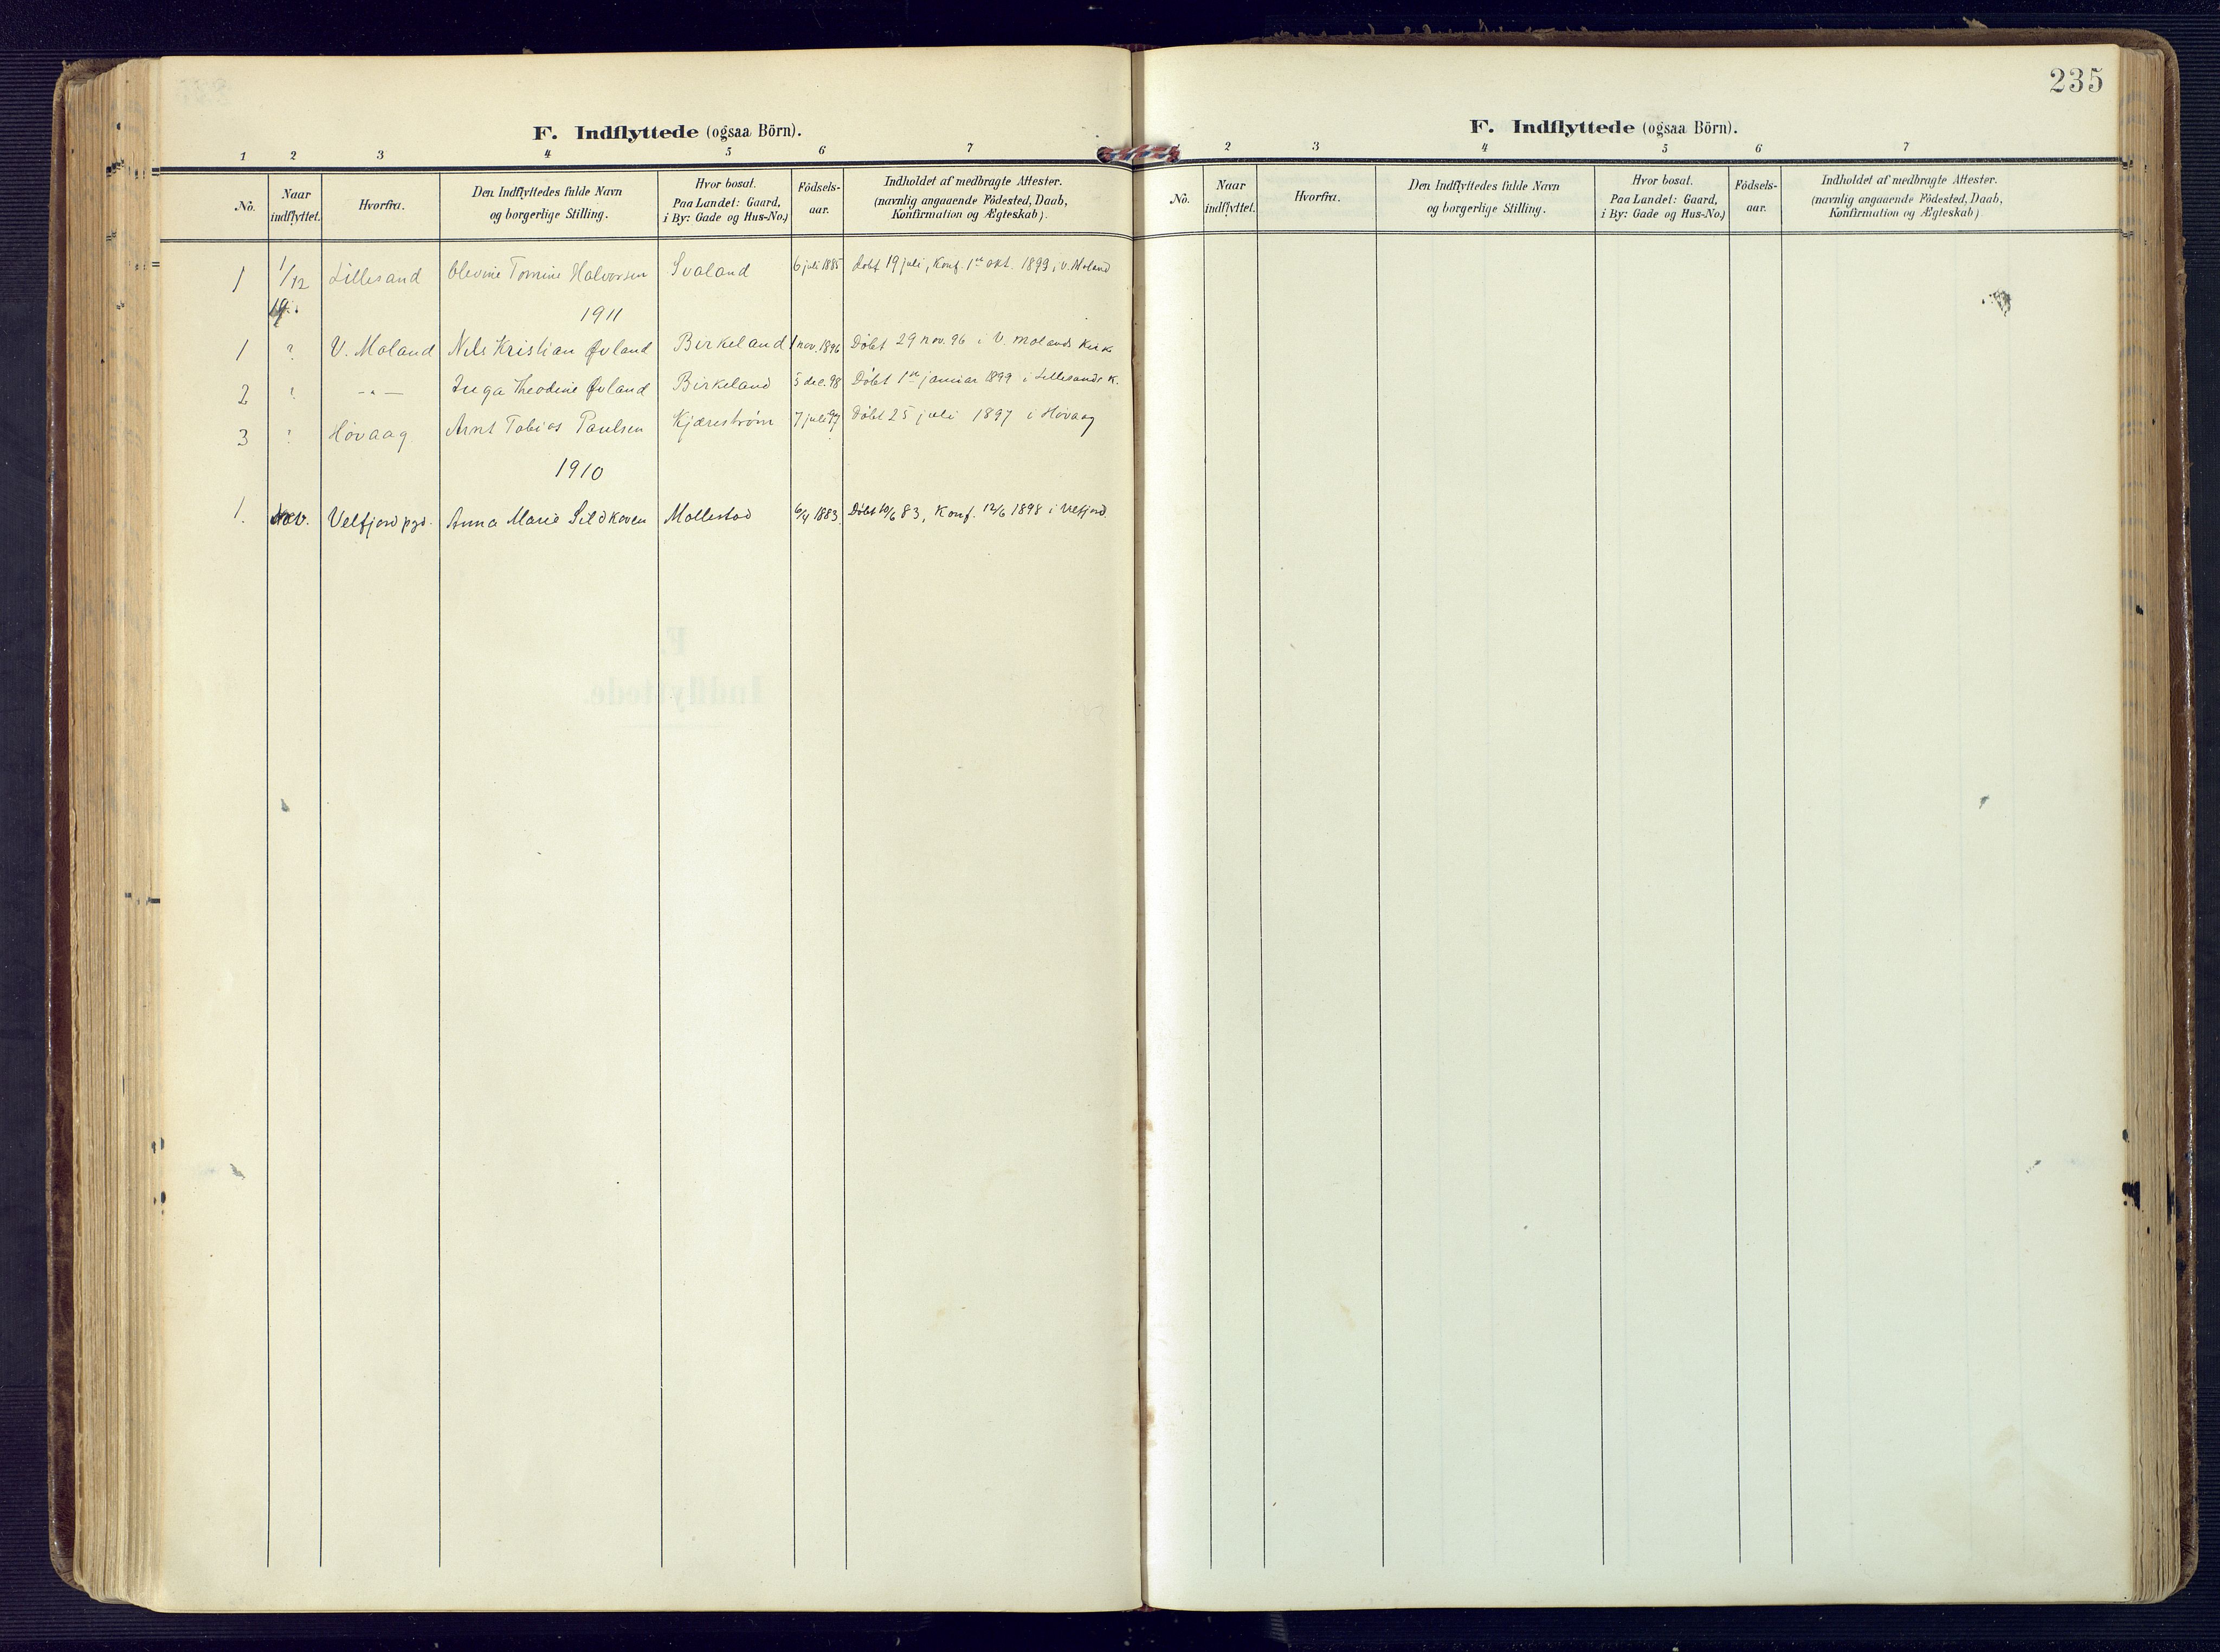 F. Indflyttede (ogsaa Börn).
1 2 3 4 5 6 7
No. Naar indflyttet. Hvorfra. Den Indflyttedes fulde Navn og borgerlige Stilling. Hvor bosat. Paa Landet: Gaard, i By: Gade og Hus-No.) Födsels-aar. Indholdet af medbragte Attester. (navnlig angaaende Födested, Daab, Konfirmation og Ægteskab).
1 1/12 Lillesand Olevine Tomine Halvorsen Svaland 6 juli 1885 døbt 19 juli, Konf. 1ste okt. 1899 i V. Moland
1911
1 ? V. Moland Nils Kristian Øvland Birkeland 1 nov. 1896 Døbt 29 nov. 96 i V. Molands Kirk
2 ? -"- Inga Theodine Øvland Birkeland 5 dec. 98 Døbt 1ste januar 1899 i Lillesands K.
3 ? Høvaag Arnt Tobias Paulsen Kjærestrøm 7 juli 97 Døbt 25 juli 1897 i Høvaag
1910
1. Nov. Velfjord pgd. Anna Marie Sildkoven Mollestad 6/4 1883. Døbt 10/6 83, Konf. 12/6 1898 i Velfjord
235
F. Indflyttede (ogsaa Börn).
2 3 4 5 6 7
No. Naar indflyttet. Hvorfra. Den Indflyttedes fulde Navn og borgerlige Stilling. Hvor bosat. Paa Landet: Gaard, i By: Gade og Hus-No.) Födsels-aar. Indholdet af medbragte Attester. (navnlig angaaende Födested, Daab, Konfirmation og Ægteskab)